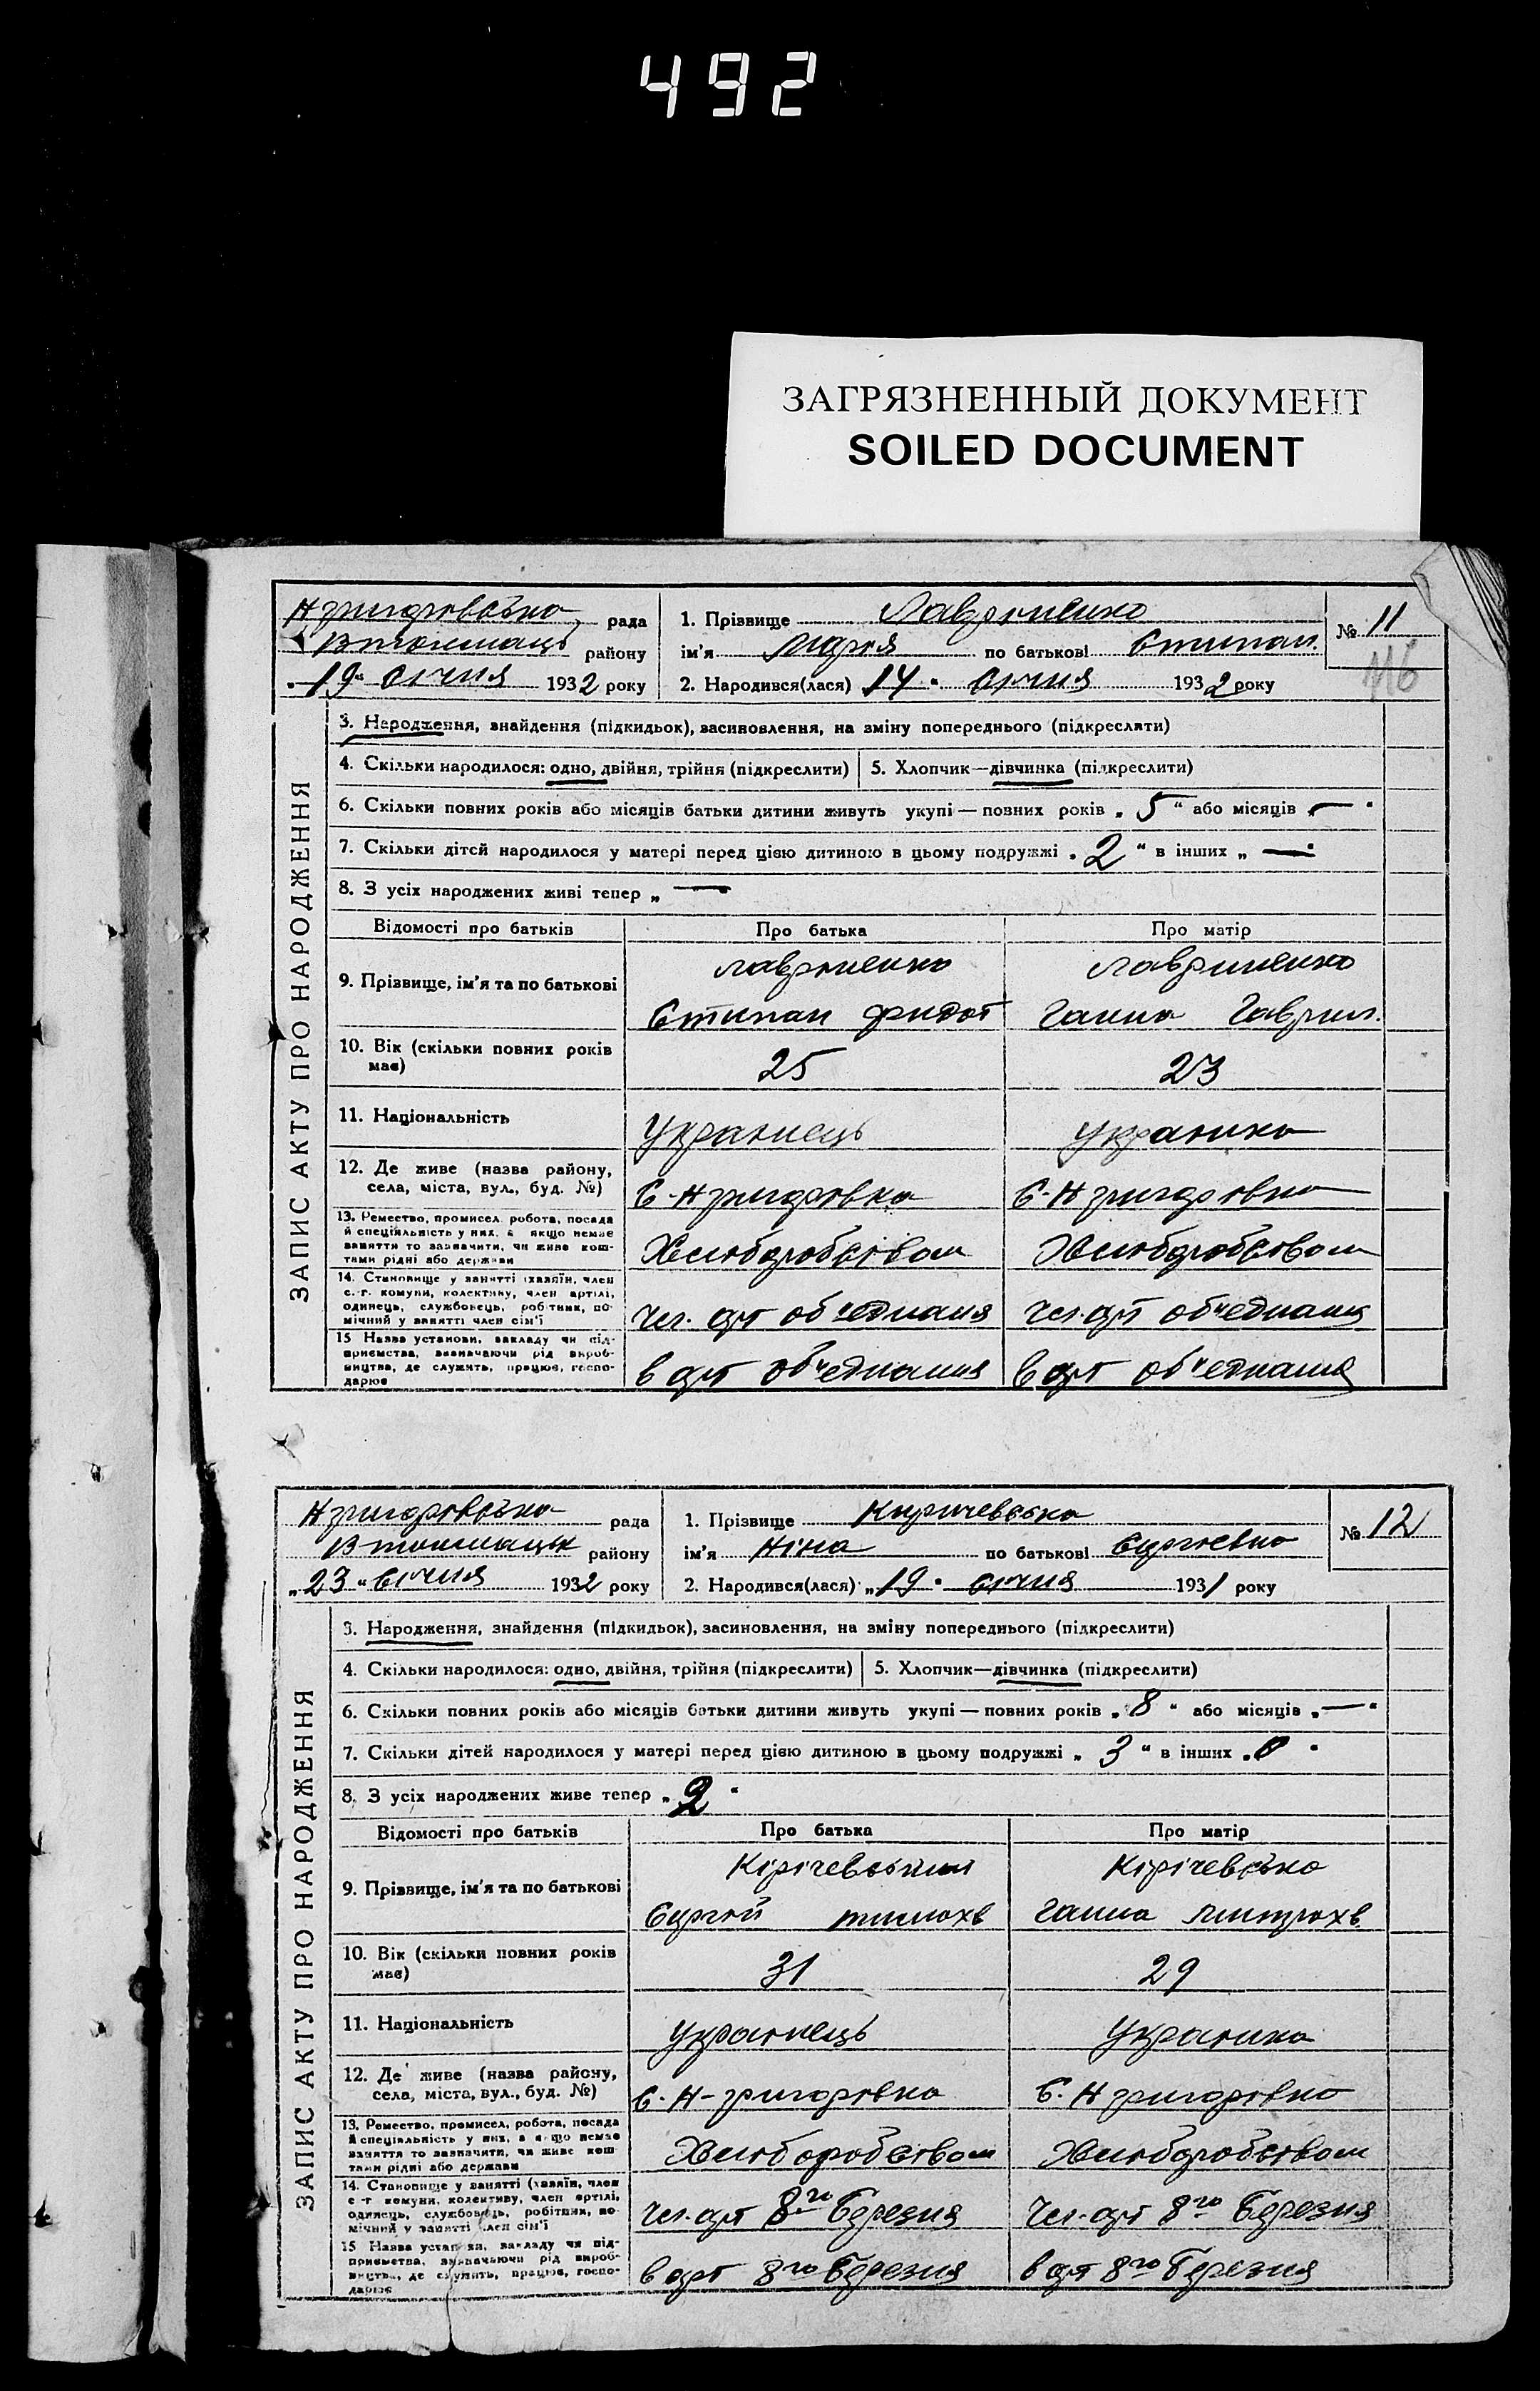 492
ЗАГРЯЗНЕННЫЙ ДОКУМЕНТ
SOILED DOCUMENT
Нригоровська рада
Втокмаць району
„19“ січня 1932 року
1. Прізвище Лавріненко
ім'я Марія по батькові Стипан.
2. Народився(лася) 14 " січня 1932 року
№ 11
116
ЗАПИС АКТУ ПРО НАРОДЖЕННЯ
3. Народження, знайдення (підкидьок), засиновлення, на зміну попереднього (підкресляти)
4. Скільки народилося: одно, двійня, трійня (підкреслити) 5. Хлопчик—дівчинка (підкреслити)
6. Скільки повних років або місяців батьки дитини живуть укупі — повних років „ 5 “ або місяців „ — "
7. Скільки дітей народилося у матері перед цією дитиною в цьому подружжі „ 2 “ в інших „ — "
8. З усіх народжених живі тепер „ —
Відомості про батьків Про батька Про матір
9. Прізвище, ім'я та по батькові
Лавріненко Лавриненко
Стипан Фидот Ганна Гаврил.
10. Вік (скільки повних років має) 25 23
11. Національність Українець Українка
12. Де живе (назва району, села, міста, вул., буд. №) С-Нригоровка С-Нригоровка
13. Ремество, промисел, робота, посада й спеціяльність у них, а якщо немає заняття то зазначити, чи живе коштами рідні або держави
Хліборобством Хліборобством
14. Становище у занятті (хазяїн, член с.-г. комуни, колективу, член артілі, одинець, службовець, робітник, помічний у занятті член сім'ї
Чл. арт об'єднаня Чл. арт об'єднаня
15 Назва установи, закладу чи підприємства, визначаючи рід виробництва, де служить, працює, господарює
в арт об'єднання в арт об'єднаня
Нригоровська рада
Втокмацьк району
„23“ січня 1932 року
1. Прізвище Киричевська
ім'я Ніна по батькові Сиргієвна
2. Народився(лася) „19 " січня 1931 року
№ 12
ЗАПИС АКТУ ПРО НАРОДЖЕННЯ
3. Народження, знайдення (підкидьок), засиновлення, на зміну попереднього (підкреслити)
4. Скільки народилося: одно, двійня, трійня (підкреслити) 5. Хлопчик—дівчинка (підкреслити)
6. Скільки повних років або місяців батьки дитини живуть укупі — повних років „ 8 “ або місяців „ — "
7. Скільки дітей народилося у матері перед цією дитиною в цьому подружжі „ 3 “ в інших „ 0 "
8. З усіх народжених живе тепер „ 2 "
Відомості про батьків Про батька Про матір
9. Прізвище, ім'я та по батькові
Кірічевський Кірічевська
Сиргій тимохв Ганна
10. Вік (скільки повних років має) 31 29
11. Національність Українець Українка
12. Де живе (назва району, села, міста, вул., буд. №) С. Н-ригоровка С. Нригоровка
13. Ремество, промисел, робота, посада й спеціяльність у них, а якщо немає заняття то зазначити, чи живе коштами рідні або держави
Хліборобством Хліборобством
14. Становище у занятті (хазяїн, член с.-г. комуни, колективу, член артілі, одинець, службовець, робітник, помічний у занятті член сім'ї
Чл. арт 8го Березня Чл. арт 8го Березня
15 Назва установи, закладу чи підприємства, визначаючи рід виробництва, де служить, працює, господарює
в арт 8го Березня в арт 8го Березня